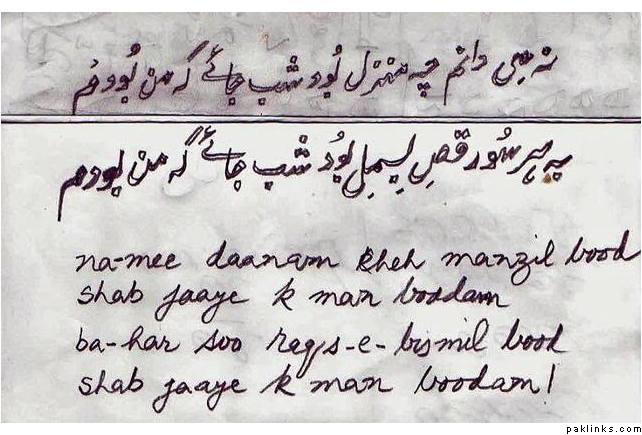 نہ می دانم چہ منزل بُود شب جائے کہ من بُودم
بہ ہر سُو رقصِ بِسمِل بُود شب جائے کہ من بودم
na-mee daanam kheh manzil bood
shab jaaye k man boodam
ba-har soo raqs-e-bismil bood
shab jaaye k man boodam!
paklinks.com